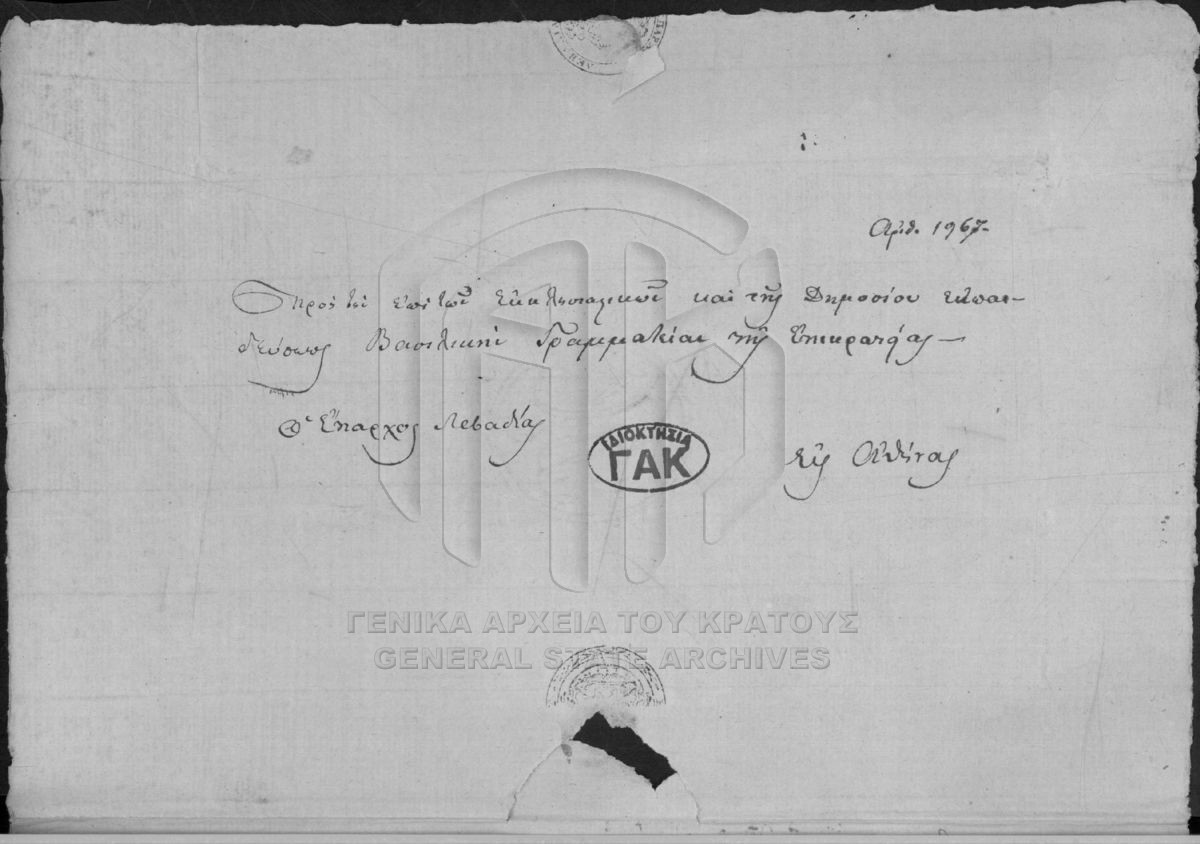 Αριθ. 1967-
Πρός τήν επί τών Εκκλησιαστικών καί τής Δημοσίου εκπαι-
δεύσεως Βασιλικήν Γραμματείαν τής Επικρατείας
Ο Έπαρχος Λεβαδείας
ΙΔΙΟΚΤΗΣΙΑ
ΓΑΚ
Εις Αθήνας
ΓΕΝΙΚΑ ΑΡΧΕΙΑ ΤΟΥ ΚΡΑΤΟΥΣ
GENERAL STATE ARCHIVES